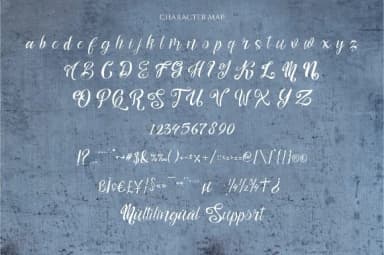 CHARACTER MAP
a b c d e f g h i j k l m n o p q r s t u v w x y z
A B C D E F G H I J K L M N
O P Q R S T U V W X Y Z
1234567890
Multilingual Support